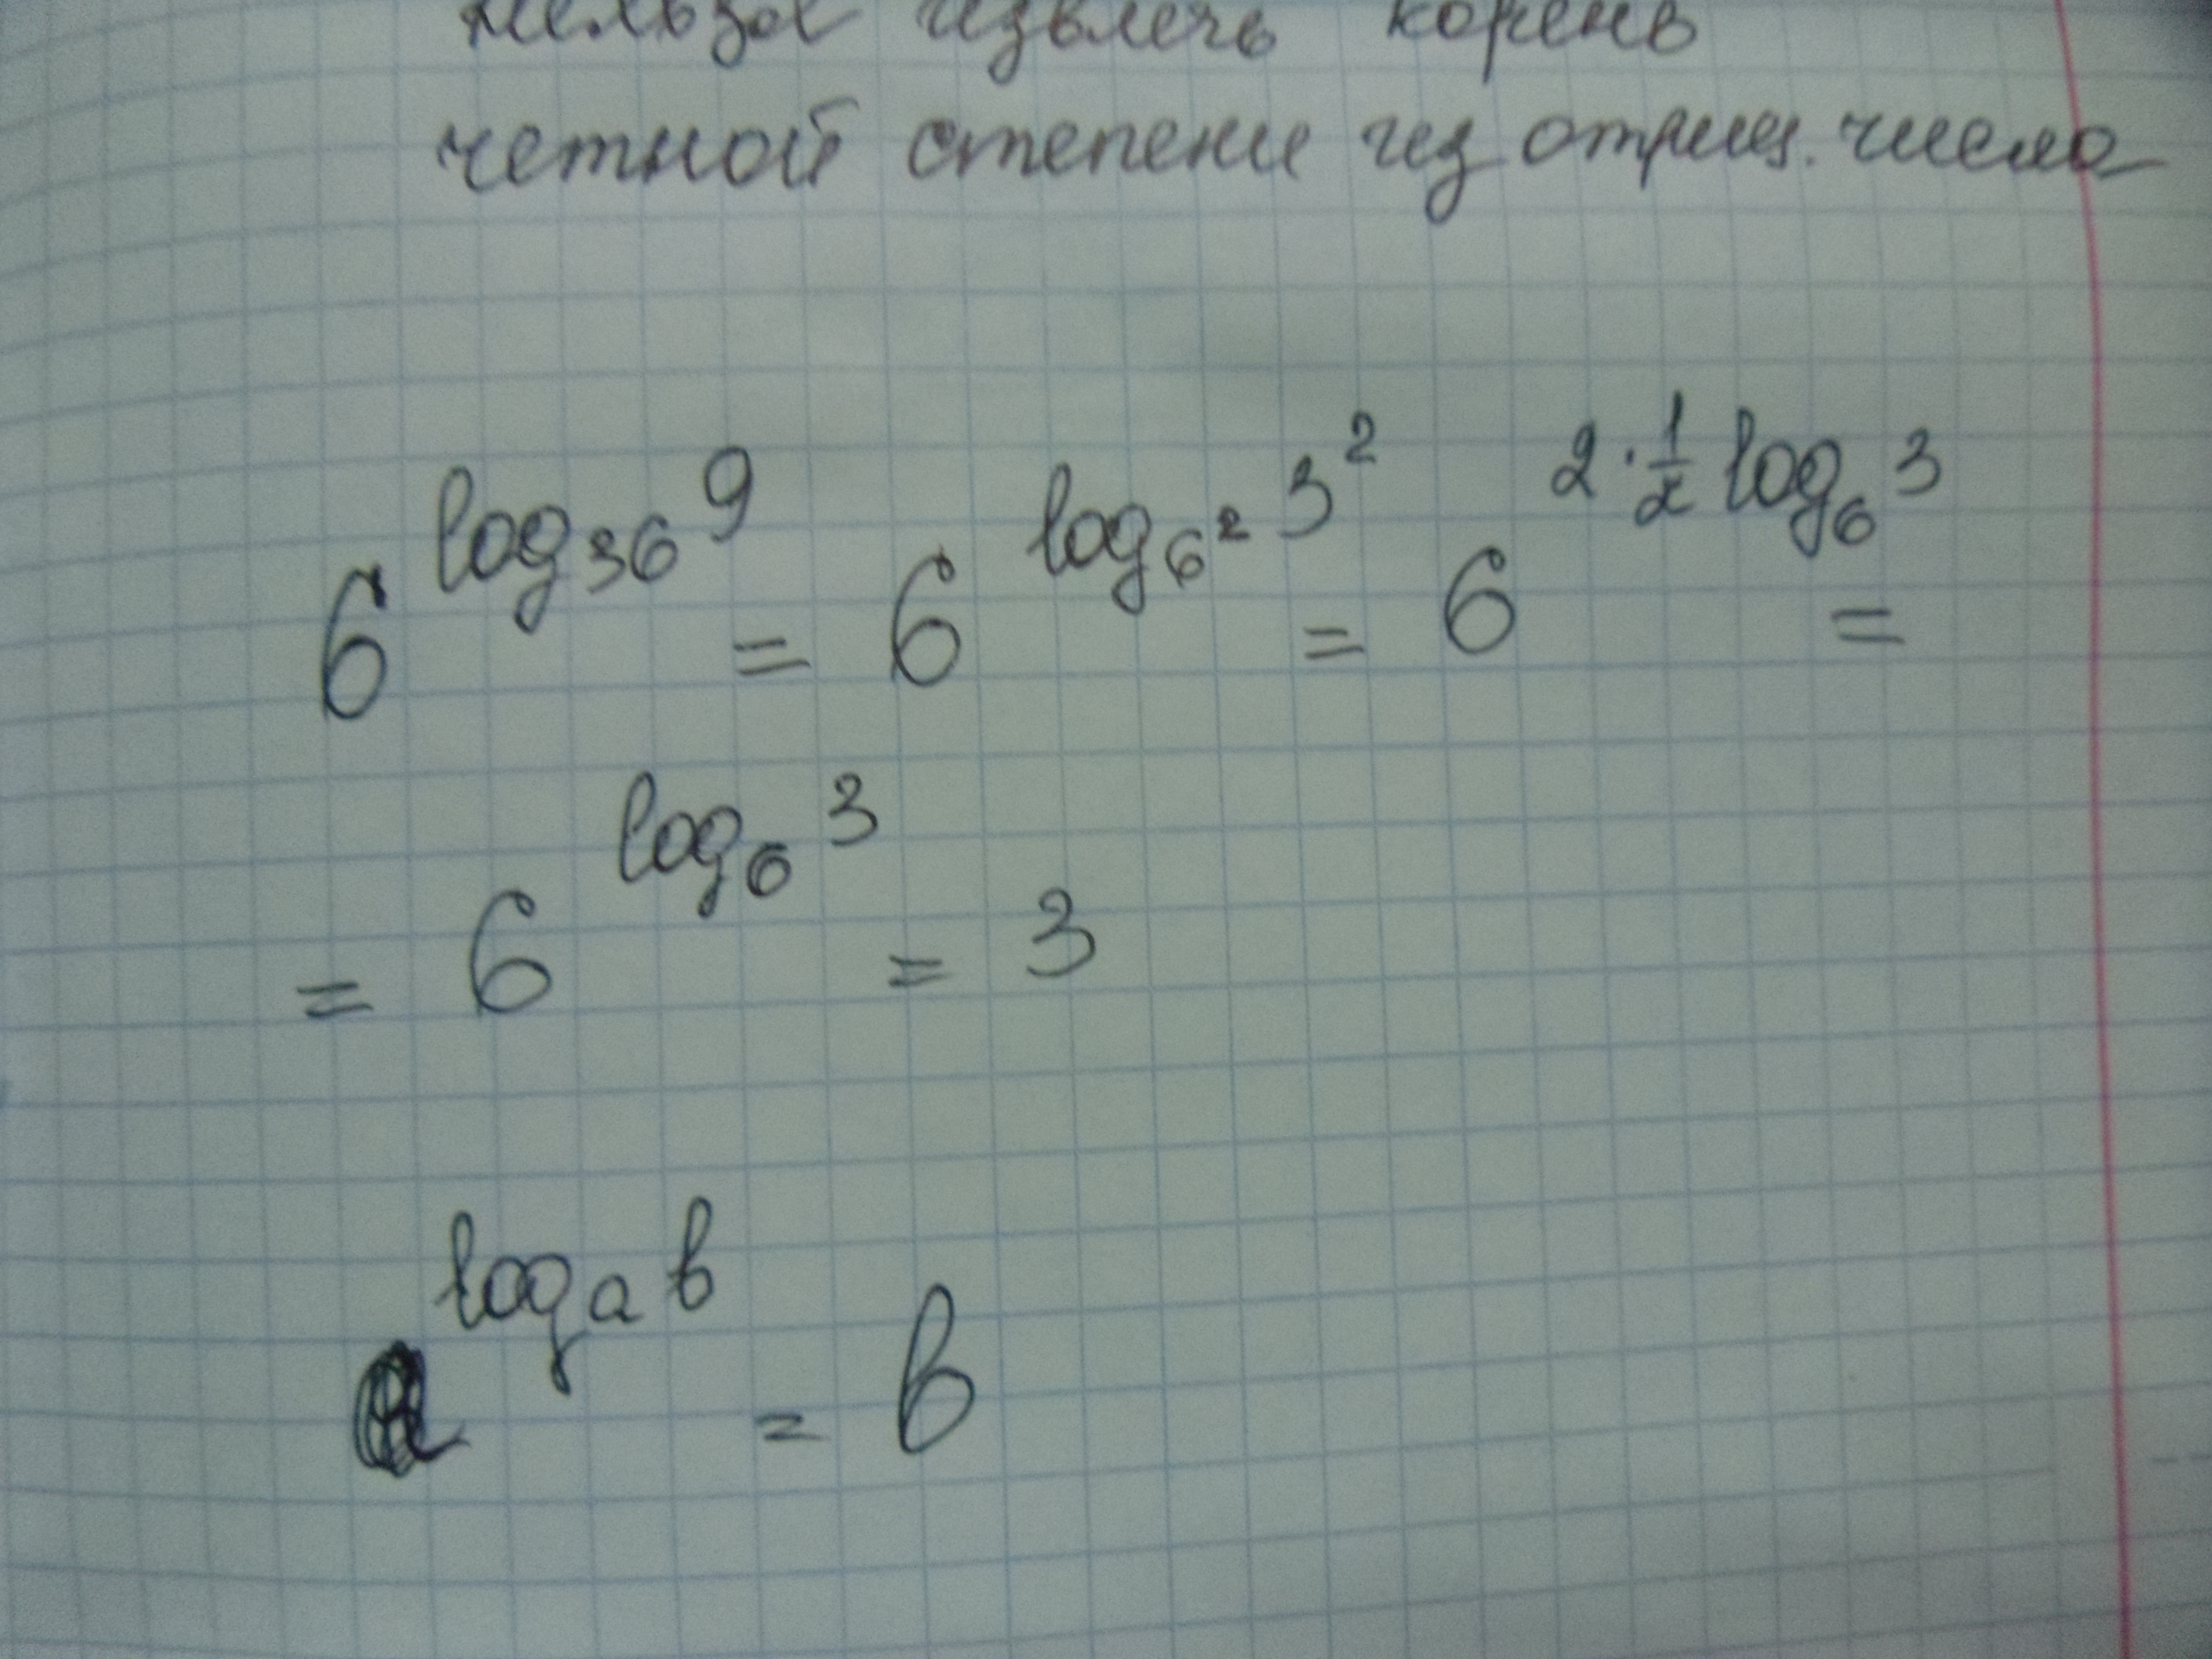 нельзя извлечь корень
четной степени из отриц. числа
6^{log_{36} 9} = 6^{log_{6^2} 3^2} = 6^{2·\frac{1}{2} log_6 3} =
= 6^{log_6 3} = 3
a^{log_a b} = b